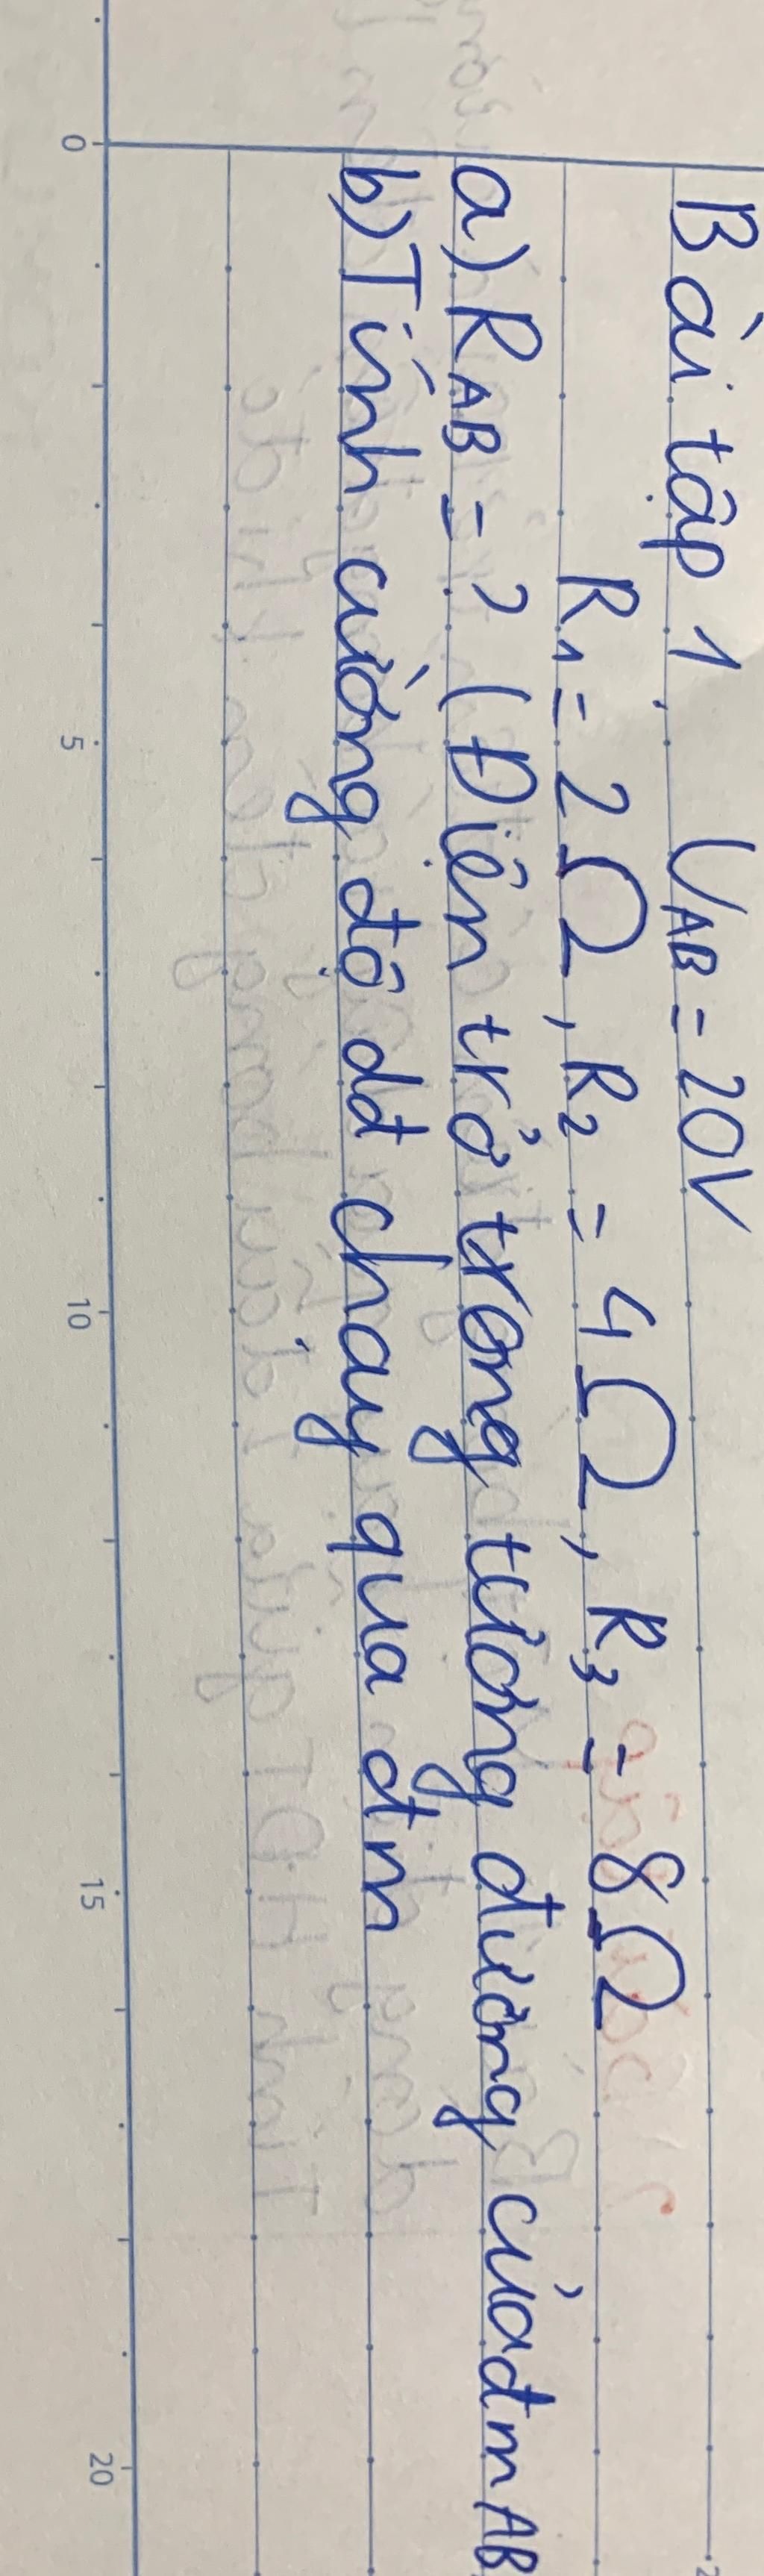 Bài tập 1. U_AB = 20V
R₁ = 2Ω, R₂ = 4Ω, R₃ = 8Ω
a) R_AB = ? (Điện trở trong tương đương của đm AB
b) Tính cường độ dđ chạy qua đm
0 5 10 15 20